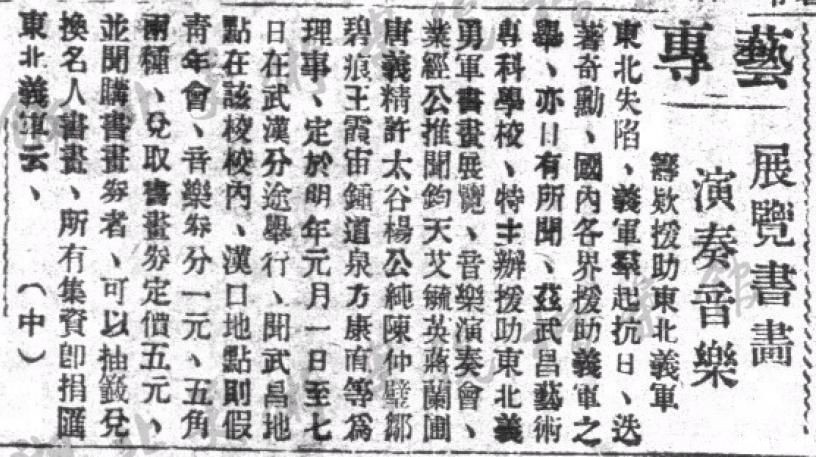 藝專
展覽書畫
演奏音樂
籌欵援助東北義軍
東北失陷、義軍羣起抗日、迭
著奇勳、國內各界援助義軍之
舉、亦日有所聞、茲武昌藝術
專科學校、特主辦援助東北義
勇軍書畫展覽、音樂演奏會、
業經公推聞鈞天艾毓英蔣蘭圃
唐義精許太谷楊公純陳仲璧鄒
碧痕王霞宙鍾道泉方康直等爲
理事、定於明年元月一日至七
日在武漢分途舉行、聞武昌地
點在該校校內、漢口地點則假
靑年會、音樂券分一元、五角
兩種、兌取書畫券定價五元、
並聞購書畫券者、可以抽籤兌
換名人書畫、所有集資卽捐匯
東北義軍云、（中）